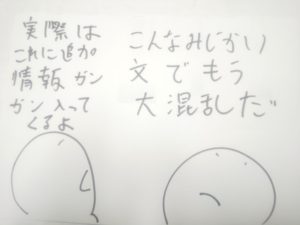 実際は
これに追加
情報がン
ガン入って
くるよ
こんなみじかい
文でもう
大混乱しだ